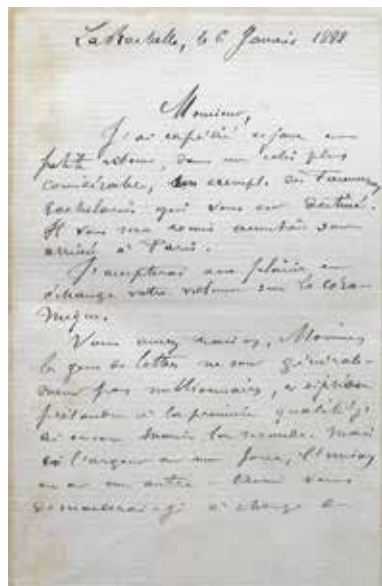 La Rochelle, le 6 Janvier 1888
Monsieur,
J'ai expédié ce jour en
petit volume, dans un colis plus
considérable, un exempl. des Faiences
Rochelaises qui vous est destiné.
Il vous sera remis aussitôt son
arrivée à Paris.
J'accepterai avec plaisir en
échange votre volume sur la céra-
mique.
Vous avez raison, Monsieur
les gens de lettres ne sont générale-
ment pas millionnaires, et si je puis
prétendre à la première qualité je
ai encore la seconde. Mais
si l'argent a une force, l'
en a une autre - vous
demanderai-je à charge de